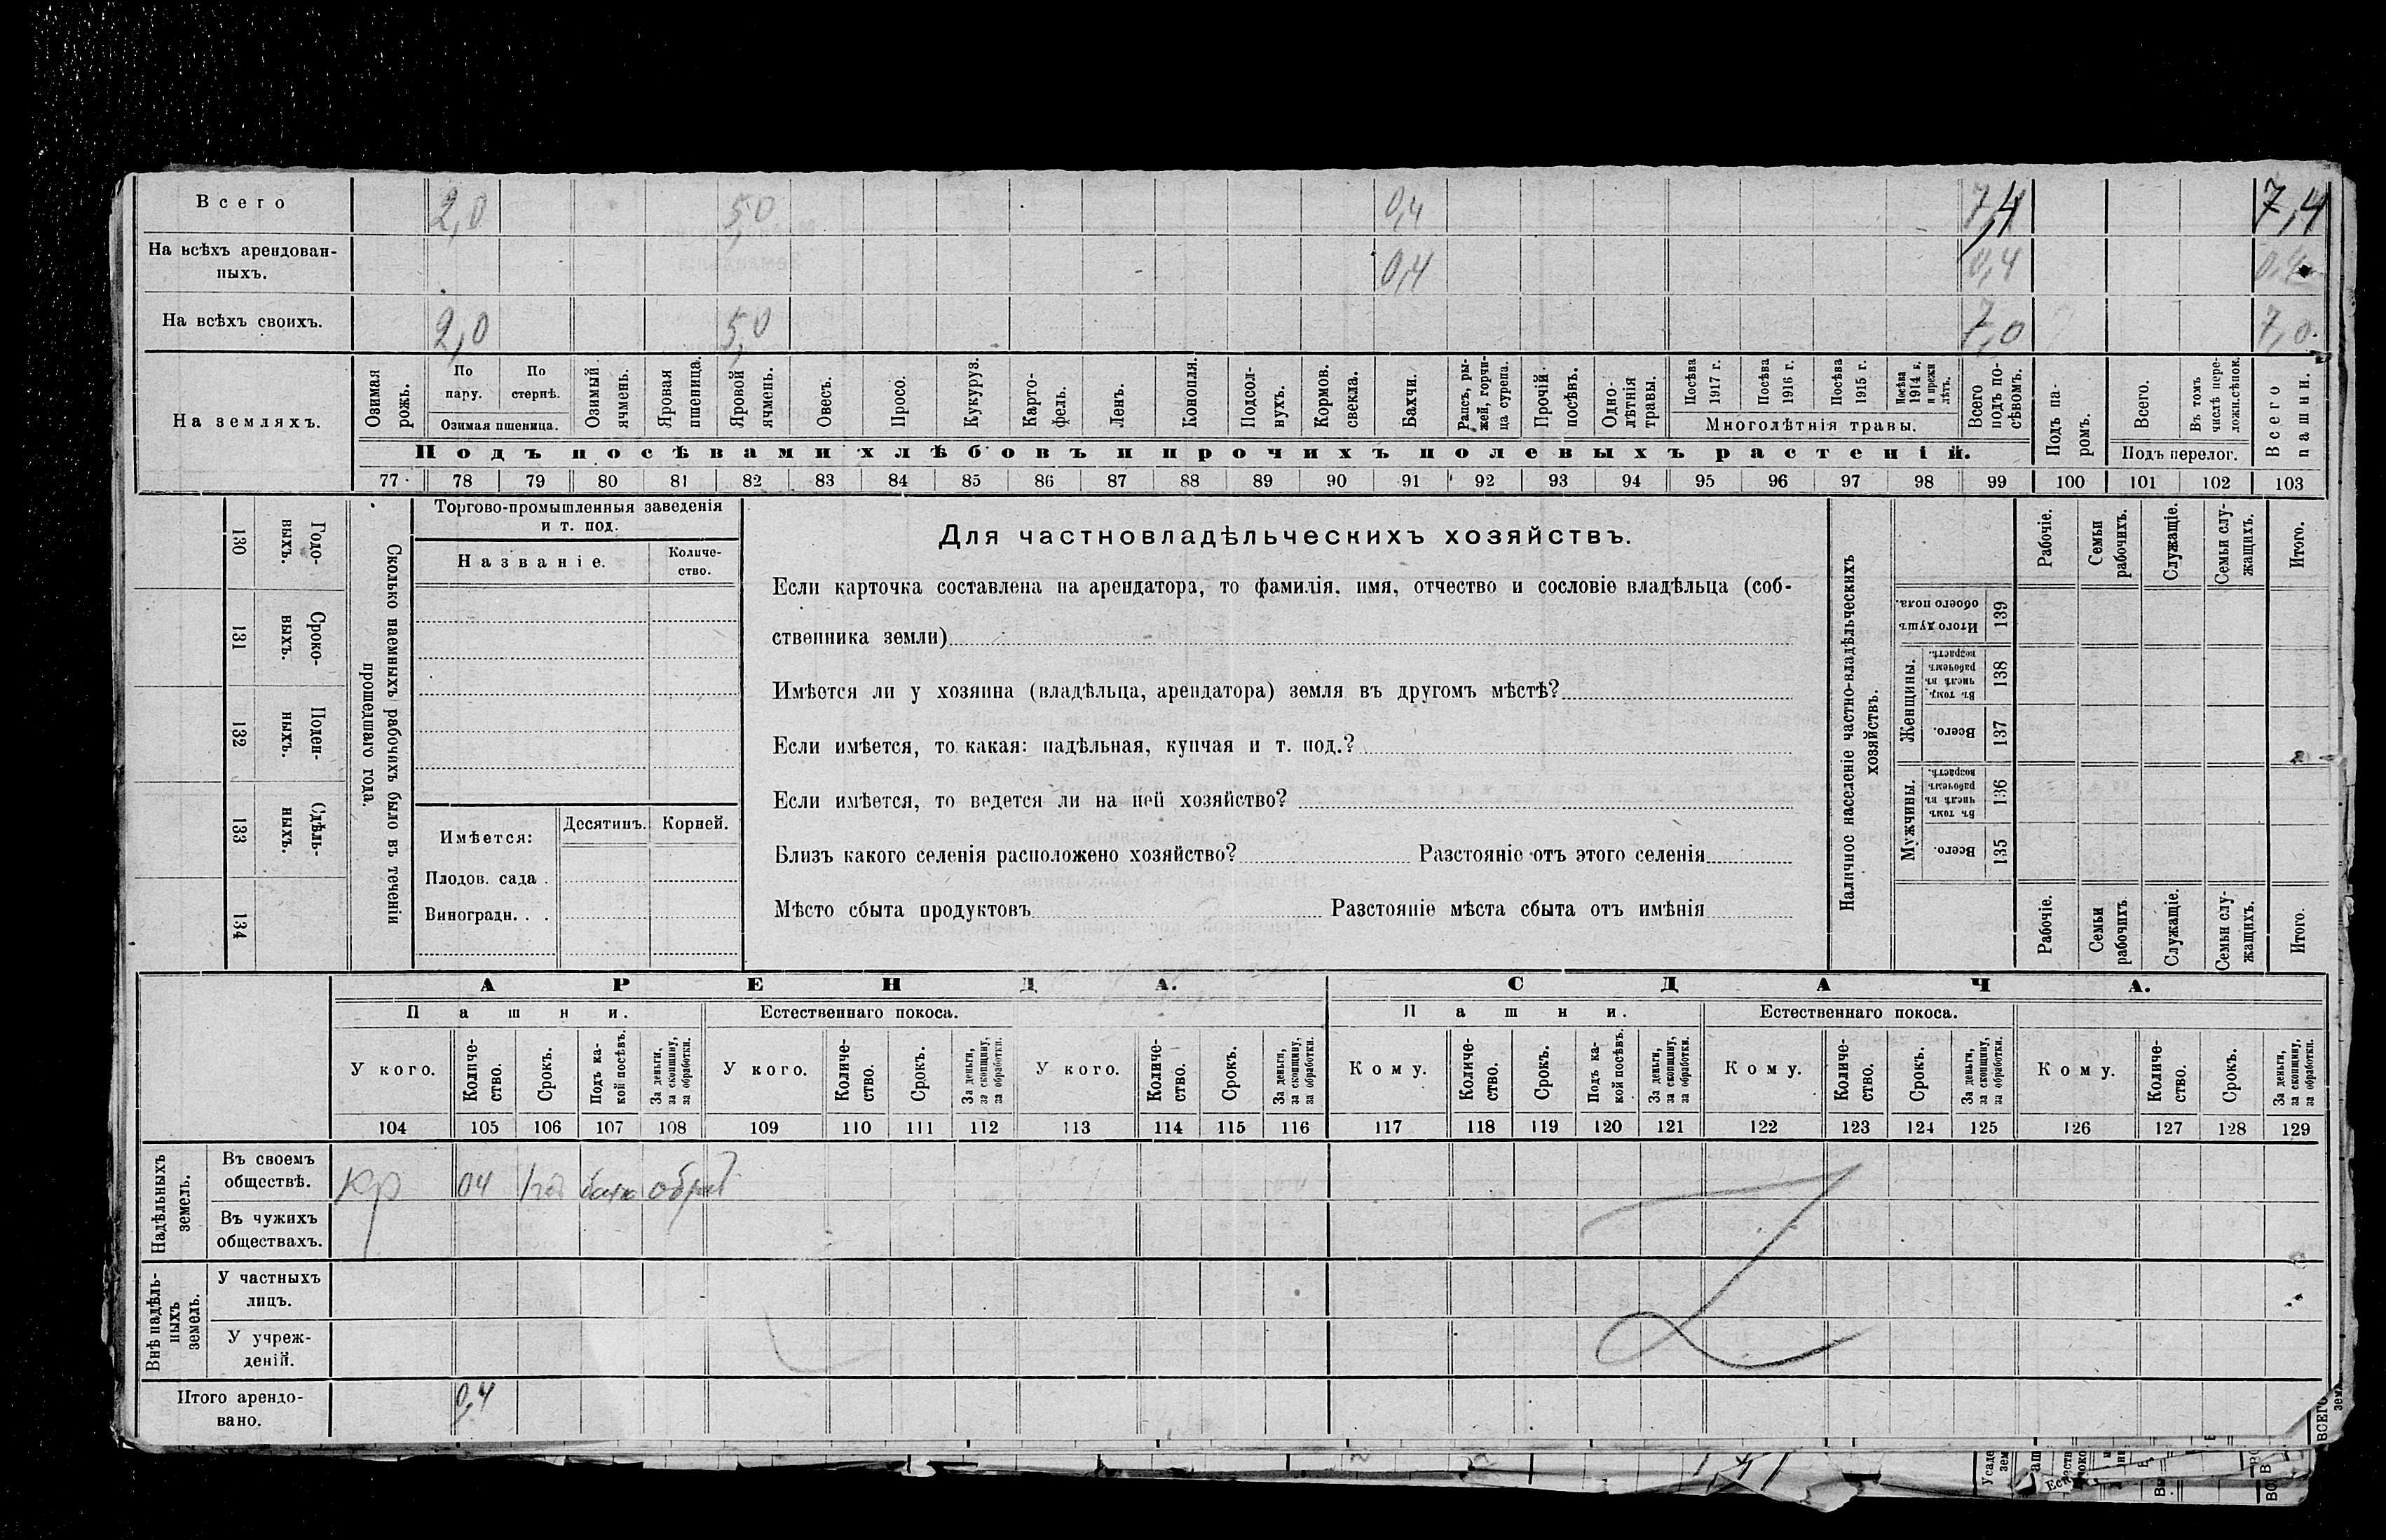 Всего 2,0 5,0 0,4 7,4 7,4
На всѣхъ арендован-
ныхъ. 0,4 0,4 0,4
На всѣхъ своихъ. 2,0 5,0 7,0 7,0
На земляхъ.
Озимая рожь.
По пару.
По стернѣ.
Озимая пшеница.
Озимый ячмень.
Яровая пшеница.
Яровой ячмень.
Овесъ.
Просо.
Кукуруз.
Карто-
фель.
Ленъ.
Конопля.
Подсол-
нухъ.
Кормов.
свекла.
Бахчи.
Рапсъ, ры-
жей, горчи-
ца сурепа.
Прочій
посѣвъ.
Одно-
лѣтнія
травы.
Посѣва 1917 г.
Посѣва 1916 г.
Посѣва 1915 г.
Посѣва 1914 г. и прежн лѣтъ.
Многолѣтнія травы.
Всего подъ по-
сѣвомъ.
Подъ па-
ромъ.
Всего.
Въ томъ числѣ пере-
ложн.сѣнок.
Подъ перелог.
Всего пашни.
Подъ посѣвами хлѣбовъ и прочихъ полевыхъ растеній.
77 78 79 80 81 82 83 84 85 86 87 88 89 90 91 92 93 94 95 96 97 98 99 100 101 102 103
130 Годо-
выхъ.
131 Сроко-
выхъ.
132 Поден-
ныхъ.
133 Сдѣль-
ныхъ.
134
Сколько наемныхъ рабочихъ было въ теченіи
прошедшаго года.
Торгово-промышленныя заведенія
и т. под.
Названіе.
Количе-
ство.
Имѣется:
Десятинъ. Корней.
Плодов. сада .
Виноградн. . .
Для частновладѣльческихъ хозяйствъ.
Если карточка составлена на арендатора, то фамилія, имя, отчество и сословіе владѣльца (соб-
ственника земли)
Имѣется ли у хозяина (владѣльца, арендатора) земля въ другомъ мѣстѣ?
Если имѣется, то какая: надѣльная, купчая и т. под.?
Если имѣется, то ведется ли на ней хозяйство?
Близъ какого селенія расположено хозяйство? Разстояніе отъ этого селенія
Мѣсто сбыта продуктовъ Разстояніе мѣста сбыта отъ имѣнія
Наличное населеніе частно-владѣльческихъ
хозяйствъ.
Рабочіе.
Семьи рабочихъ.
Служащіе.
Семьи слу-
жащихъ.
Итого.
Итого душъ обоего пола. 139
Женщины.
Въ томъ числѣ въ рабочемъ возрастѣ. 138
Всего. 137
Мужчины.
Въ томъ числѣ въ рабочемъ возрастѣ. 136
Всего. 135
Рабочіе.
Семьи рабочихъ
Служащіе.
Семьи слу-
жащихъ.
Итого.
АРЕНДА. СДАЧА.
Пашни. Естественнаго покоса. Пашни. Естественнаго покоса.
У кого.
Количе-
ство.
Срокъ.
Подъ ка-
кой посѣвъ.
За деньги, за скопщину, за обработки.
У кого.
Количе-
ство.
Срокъ.
За деньги, за скопщину, за обработки.
У кого.
Количе-
ство.
Срокъ.
За деньги, за скопщину, за обработки.
Кому.
Количе-
ство.
Срокъ.
Подъ ка-
кой посѣвъ.
За деньги, за скопщину, за обработки.
Кому.
Количе-
ство.
Срокъ.
За деньги, за скопщину, за обработки.
Кому.
Количе-
ство.
Срокъ.
За деньги, за скопщину, за обработки.
104 105 106 107 108 109 110 111 112 113 114 115 116 117 118 119 120 121 122 123 124 125 126 127 128 129
Надѣльныхъ
земель.
Въ своемъ
обществѣ. Кр 04
Въ чужихъ
обществахъ.
Внѣ надѣль-
ныхъ
земель.
У частныхъ
лицъ.
У учреж-
деній.
Итого арендо-
вано. 0,4